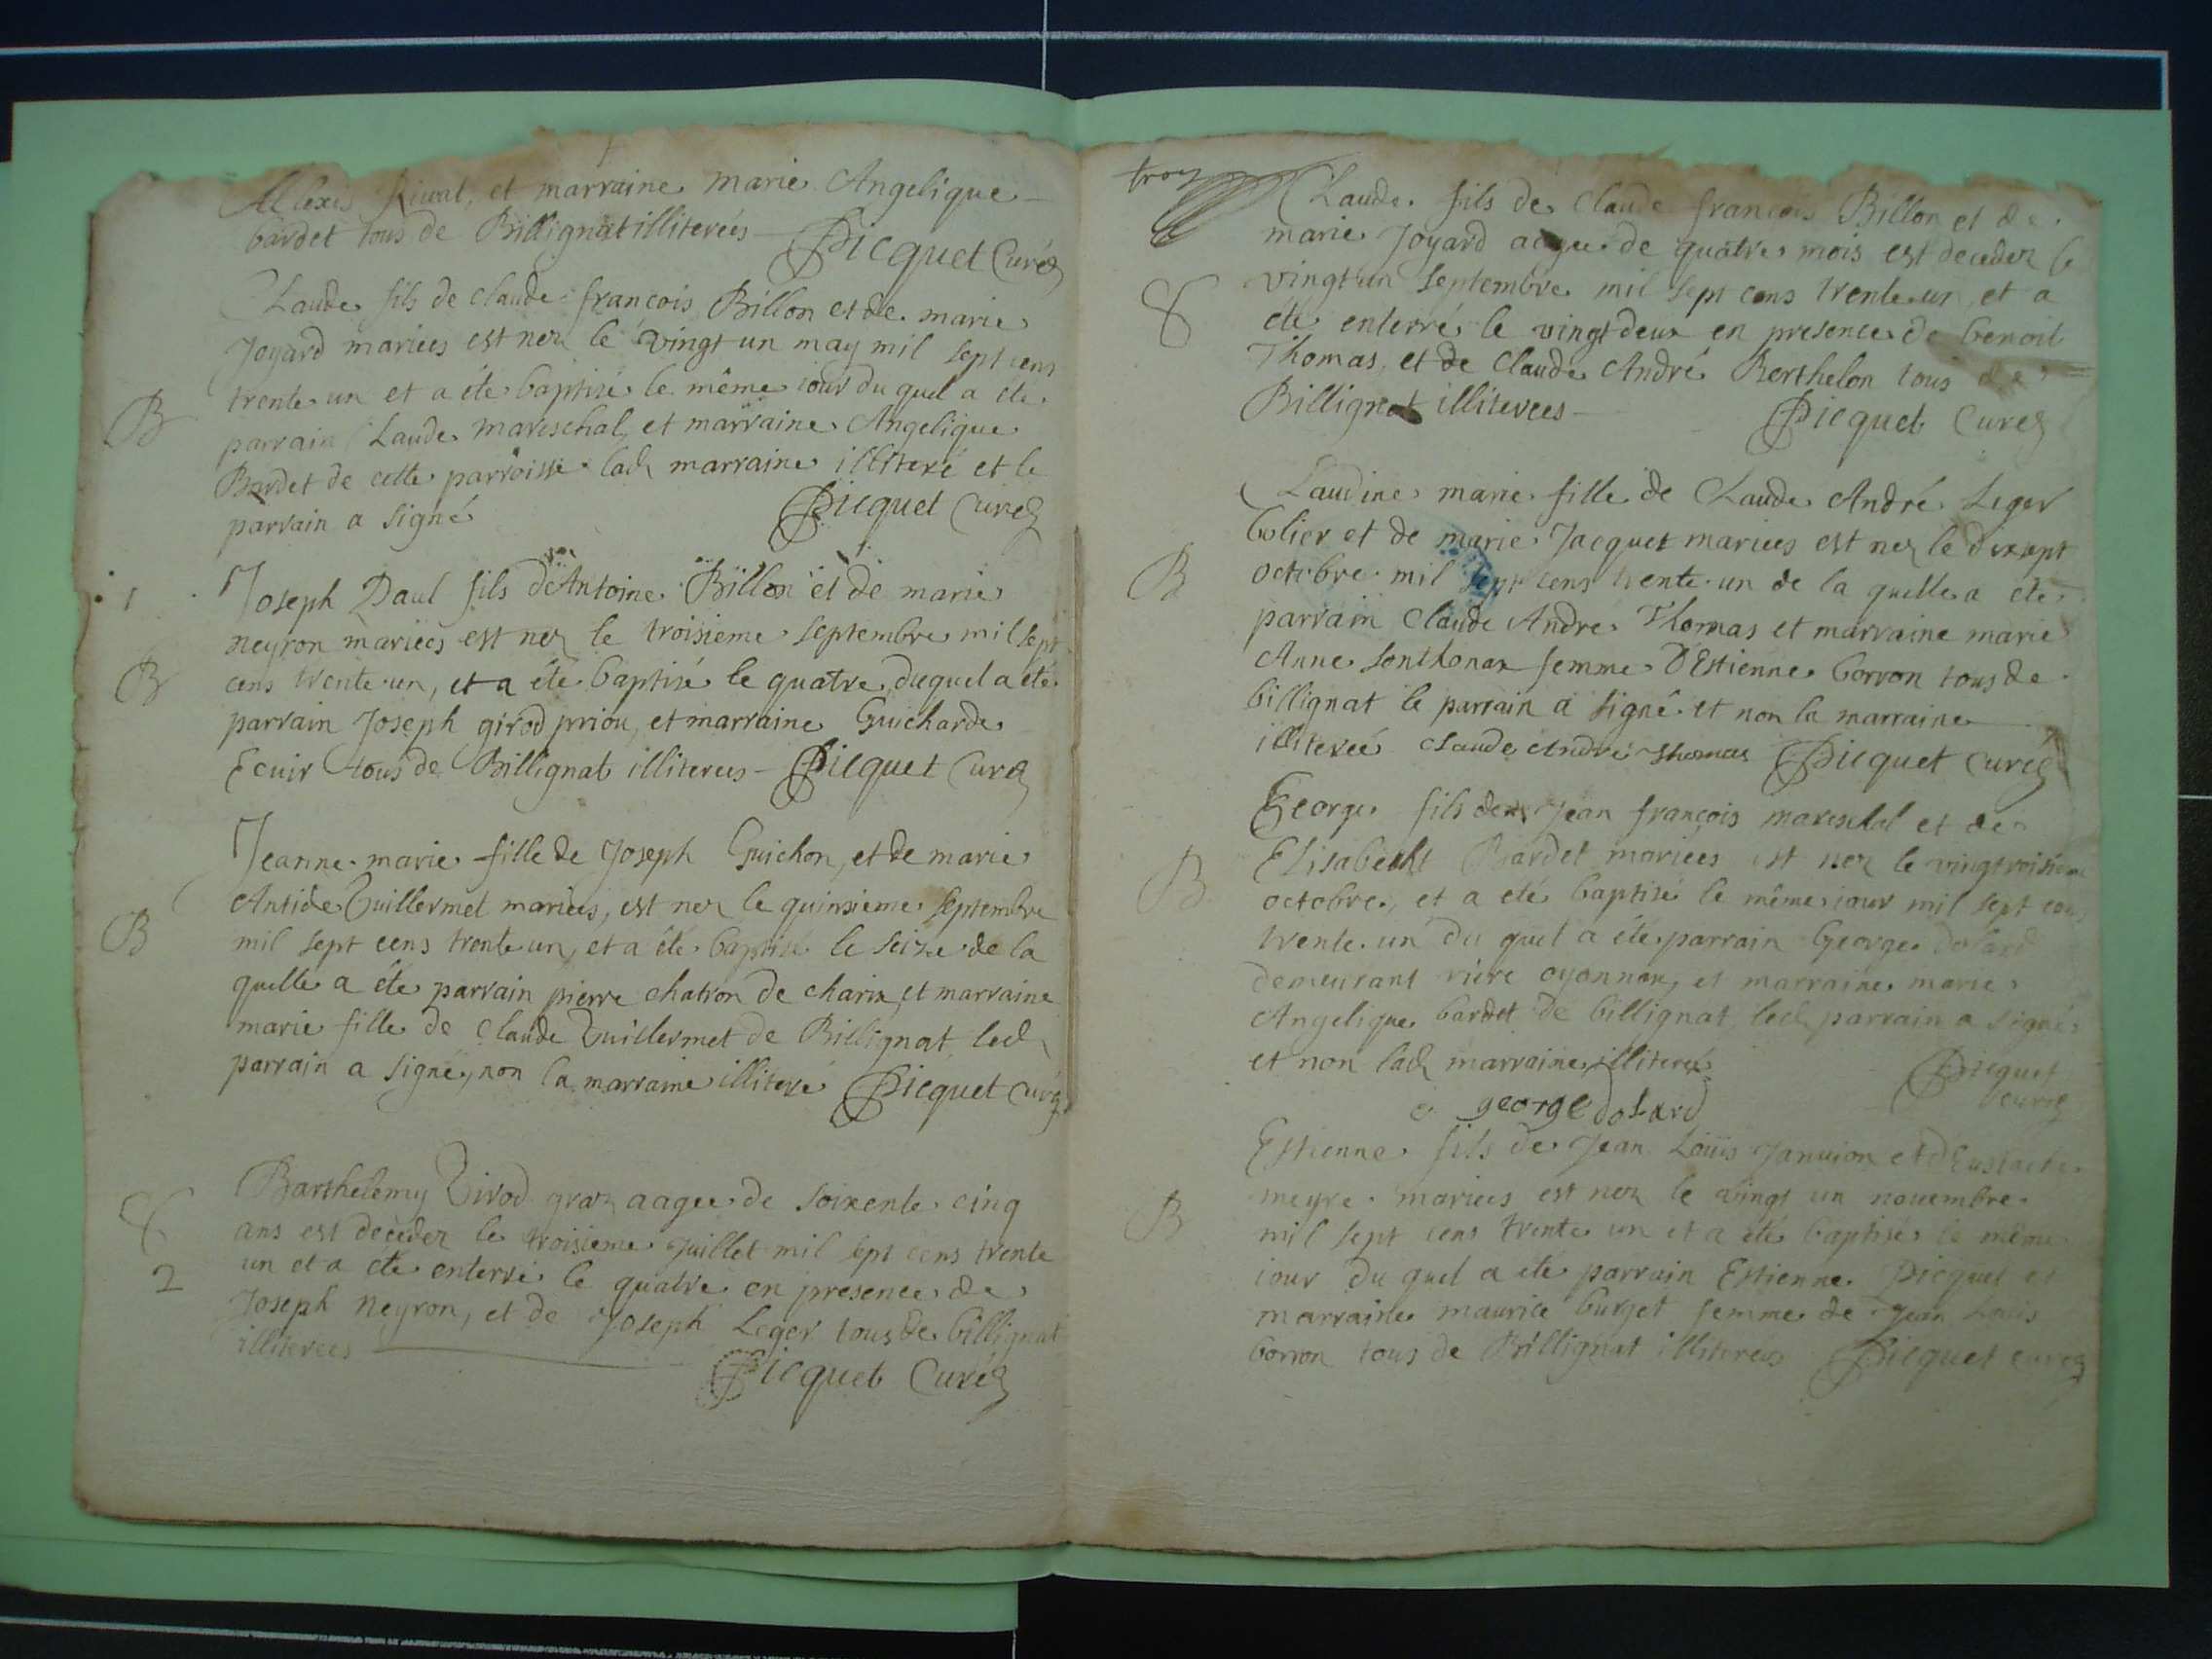 Alexis Rival, et marraine marie Angelique
bardet tous de Billignat illiterées Picquet Curé
Claude fils de claude francois Billon et de marie
Joyard mariees est nez le vingt un may mil sept cens
trente un et a été baptisé le même iour du quel a été
B
parrain Claude mareschal, et marraine Angelique
Bardet de cette parroisse lad marraine illiteré et le
parrain a signé Picquet Curé
1
Joseph Paul fils de Antoine Billon et de marie
neyron mariees est nez le troisieme septembre mil sept
B
cens trente un, et a été baptisé le quatre, duquel a été
parrain Joseph girod priou, et marraine Guicharde
Ecuir tous de Billignat illiterees Picquet Curé
Jeanne marie fille de Joseph Guichon, et de marie
Antide Vuillermet mariees, est nez le quinsieme septembre
B
mil sept cens trente un, et a été baptisé le seize de la
quelle a été parrain pierre chatron de charix, et marraine
marie fille de Claude Vuillermet de Billignat, led
parrain a signé, non la marraine illiteré Picquet Curé
Barthelemy Girod aagee de soixente cinq
ans est deceder le troisieme Juillet mil sept cens trente
2
un et a été enterré le quatre en presence de
Joseph neyron, et de Joseph Leger tous de billignat
illiterees
Picquet Curé
troy
Claude fils de Claude francois Billon et de
marie Joyard aagee de quatre mois est deceder le
vingt un septembre mil sept cens trente un, et a
été enterré le vingt deux en presence de benoit
Thomas, et de Claude André Berthelon tous de
Billignat illiterees Picquet Curé
Claudine marie fille de Claude André Leger
bolier et de marie Jacquet mariees est nez le dixsept
B
octobre mil sept cens trente un de la quelle a été
parrain Claude André Thomas et marraine marie
Anne Sonthonax femme D'Estienne borron tous de
billignat le parrain a signé et non la marraine
illitereé Claude André Thomas Picquet Curé
George fils de Jean françois mareschal et de
Elisabeth Bardet mariees est nez le vingtroisieme
B
octobre, et a été baptisé le même iour mil sept cens
trente un du quel a été parrain George dolard
demeurant riere oyonnax, et marraine marie
Angelique bardet de billignat led parrain a signé
et non lad marraine illiteré
Picquet
Curé
george dolard
Estienne fils de Jean Loüis Janvion et d'Eustache
meyre mariees est nez le vingt un nouembre
B
mil sept cens trente un et a été baptisé le même
iour du quel a été parrain Estienne Picquet et
marraine maurice burjet femme de Jean Louis
borron tous de Billignat illiterees Picquet Curé